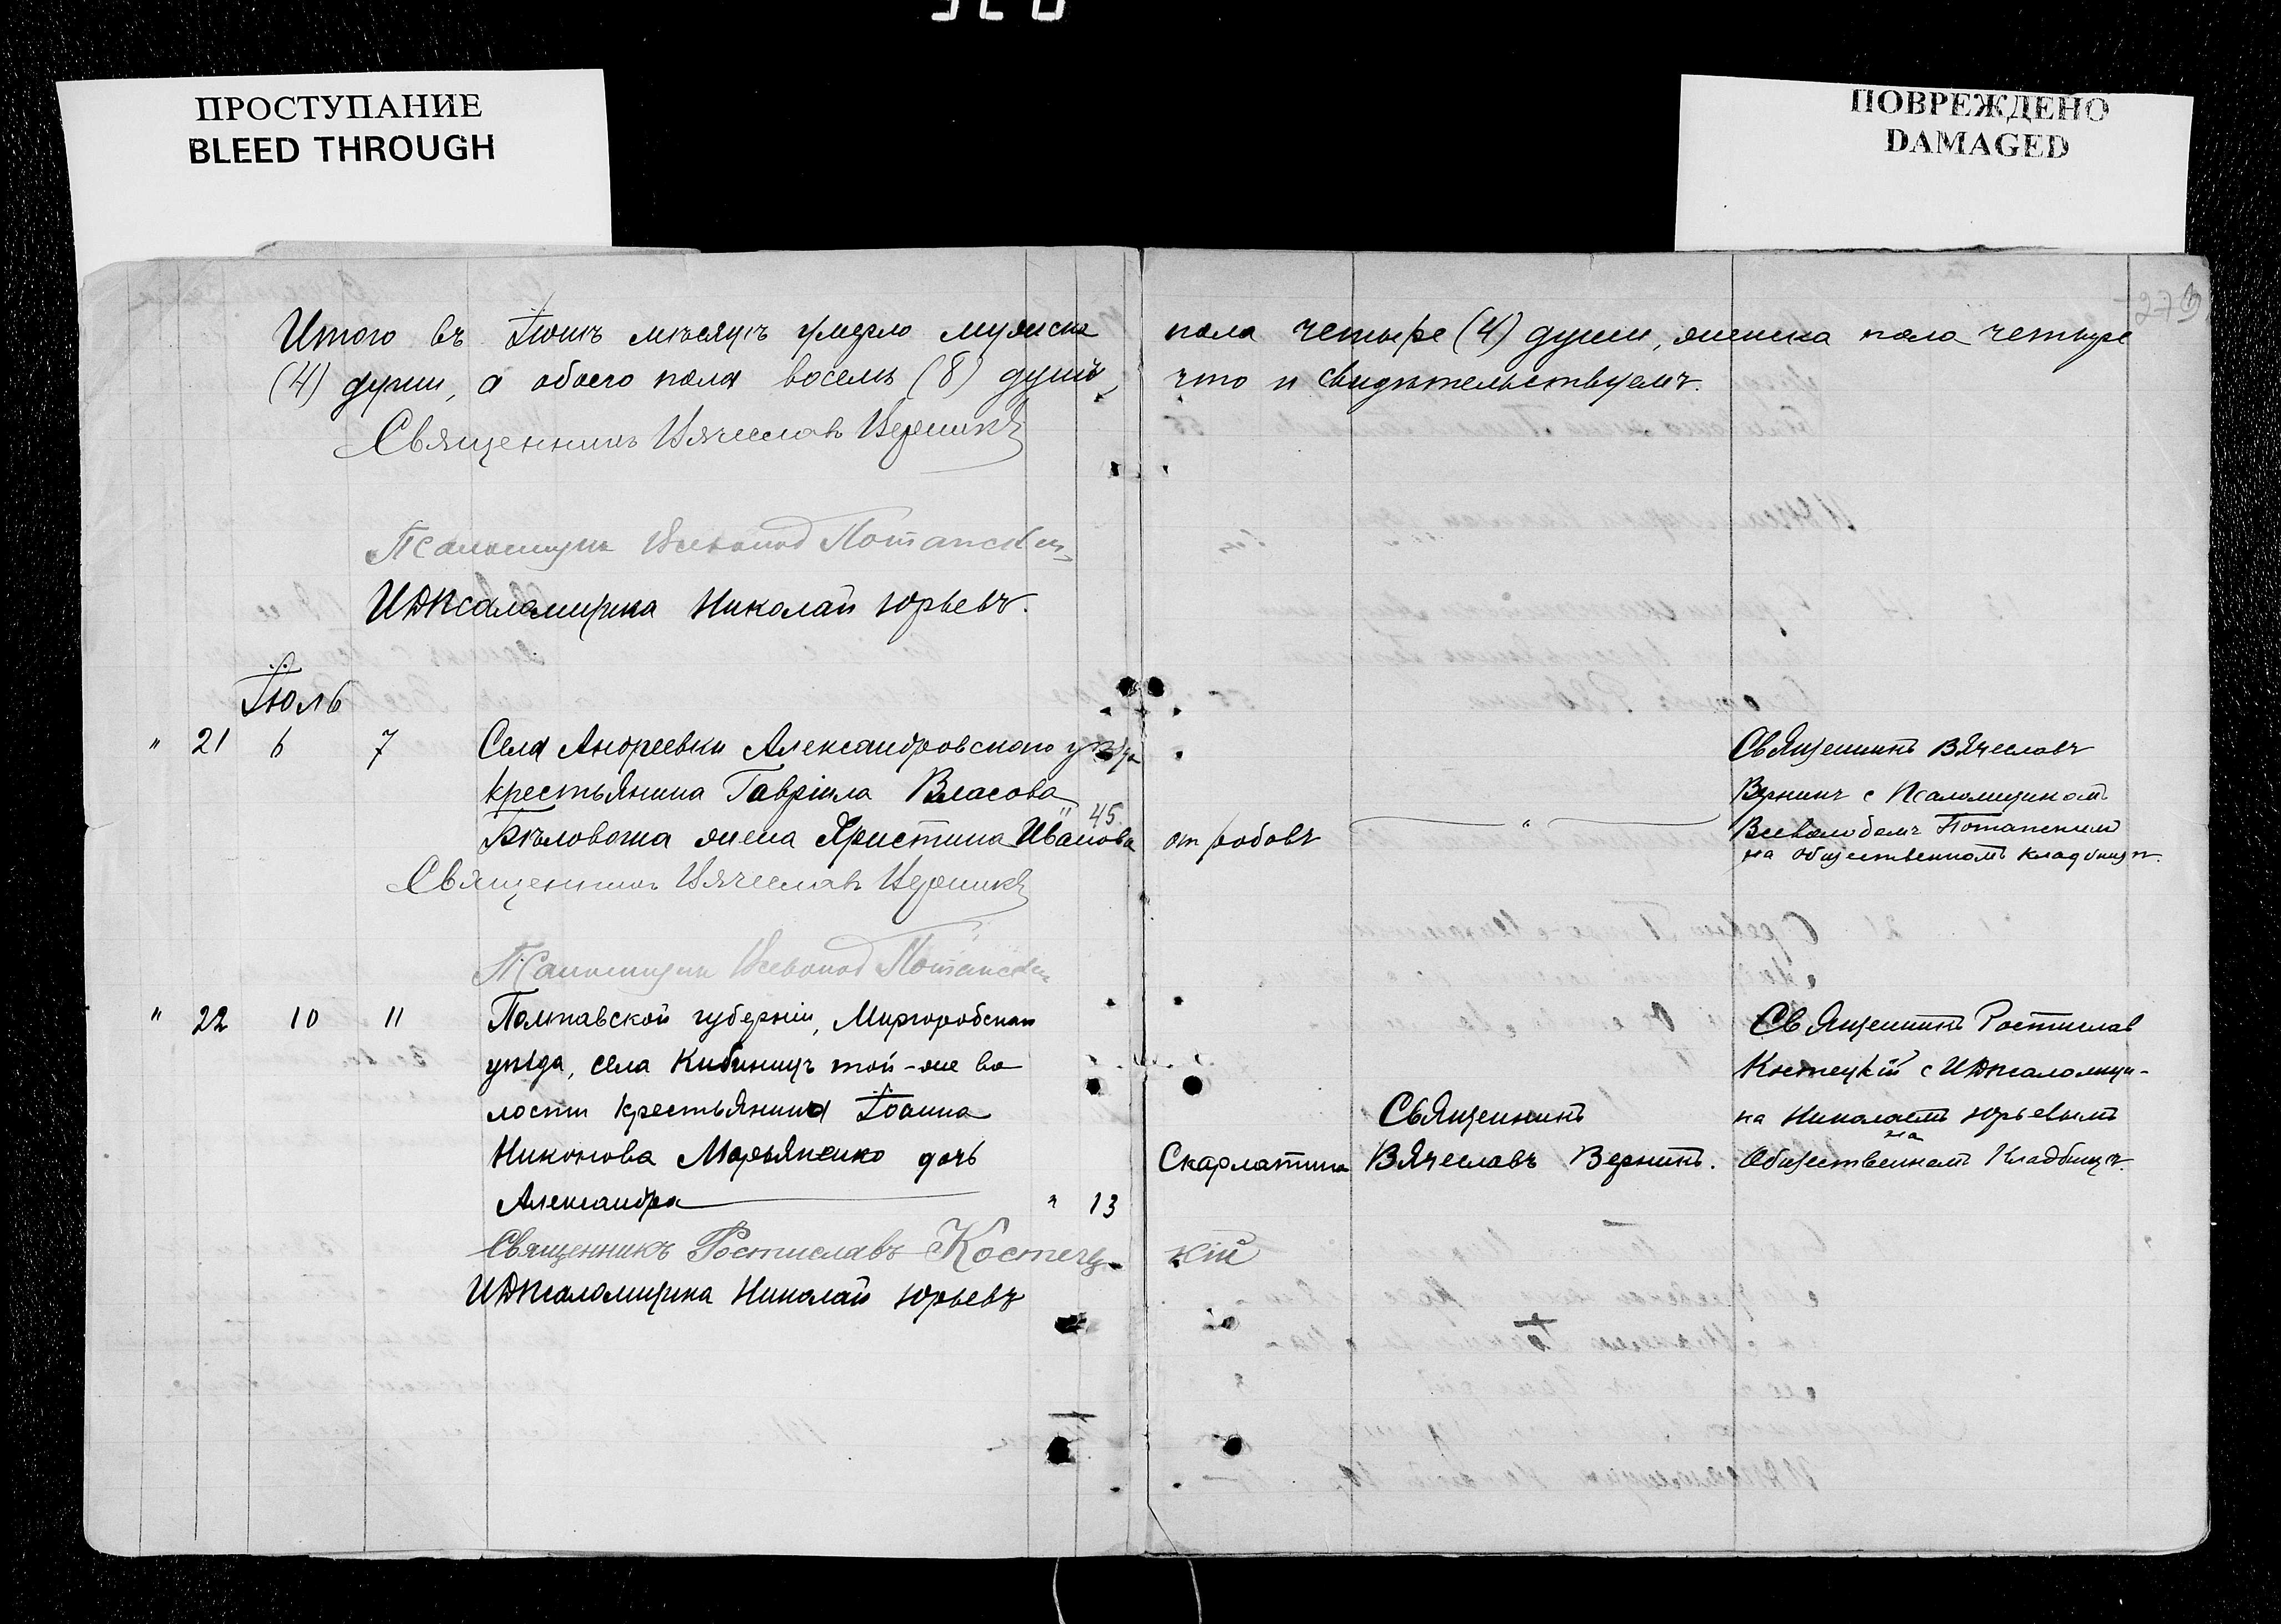 ПРОСТУПАНИЕ
BLEED THROUGH
ПОВРЕЖДЕНО
DAMAGED
Итого въ Iюнѣ мѣсяцѣ умерло мужска пола четыре (4) души, женска пола четыре
(4) души, а обоего пола восемь (8) душъ, что и свидѣтельствуемъ.
Священникъ Вячеславъ Верникъ
Псаломщикъ Всеволод Потапскій
И Д Псаломщика Николай Юрьевъ.
Iюль
" 21 6 7
Села Андреевки Александровского уѣзда
крестьянина Гаврiила Власова
Бѣловола жена Христина Иванова
" 45.
от родовъ
"
Священникъ Вячеславъ
Верникъ с Псаломщикомъ
Всеволодомъ Потапскимъ
на общественномъ кладбищѣ.
Священникъ Вячеславъ Верникъ
Псаломщикъ Всеволод Потапскій
" 22 10 11
Полтавской губернiи, Миргородскаго
уѣзда, села Кибинцъ той-же во
лости крестьянина Iоанна
Никонова Марьяненко дочь
Александра
" 13
Скарлатина
Священникъ
Вячеславъ Верникъ.
Священникъ Ростислав
Костецкiй с И Д Псаломщи-
ка Николаемъ Юрьевымъ
на
Общественномъ Кладбищѣ.
Священникъ Ростиславъ Костецкiй
И Д Псаломщика Николай Юрьевъ